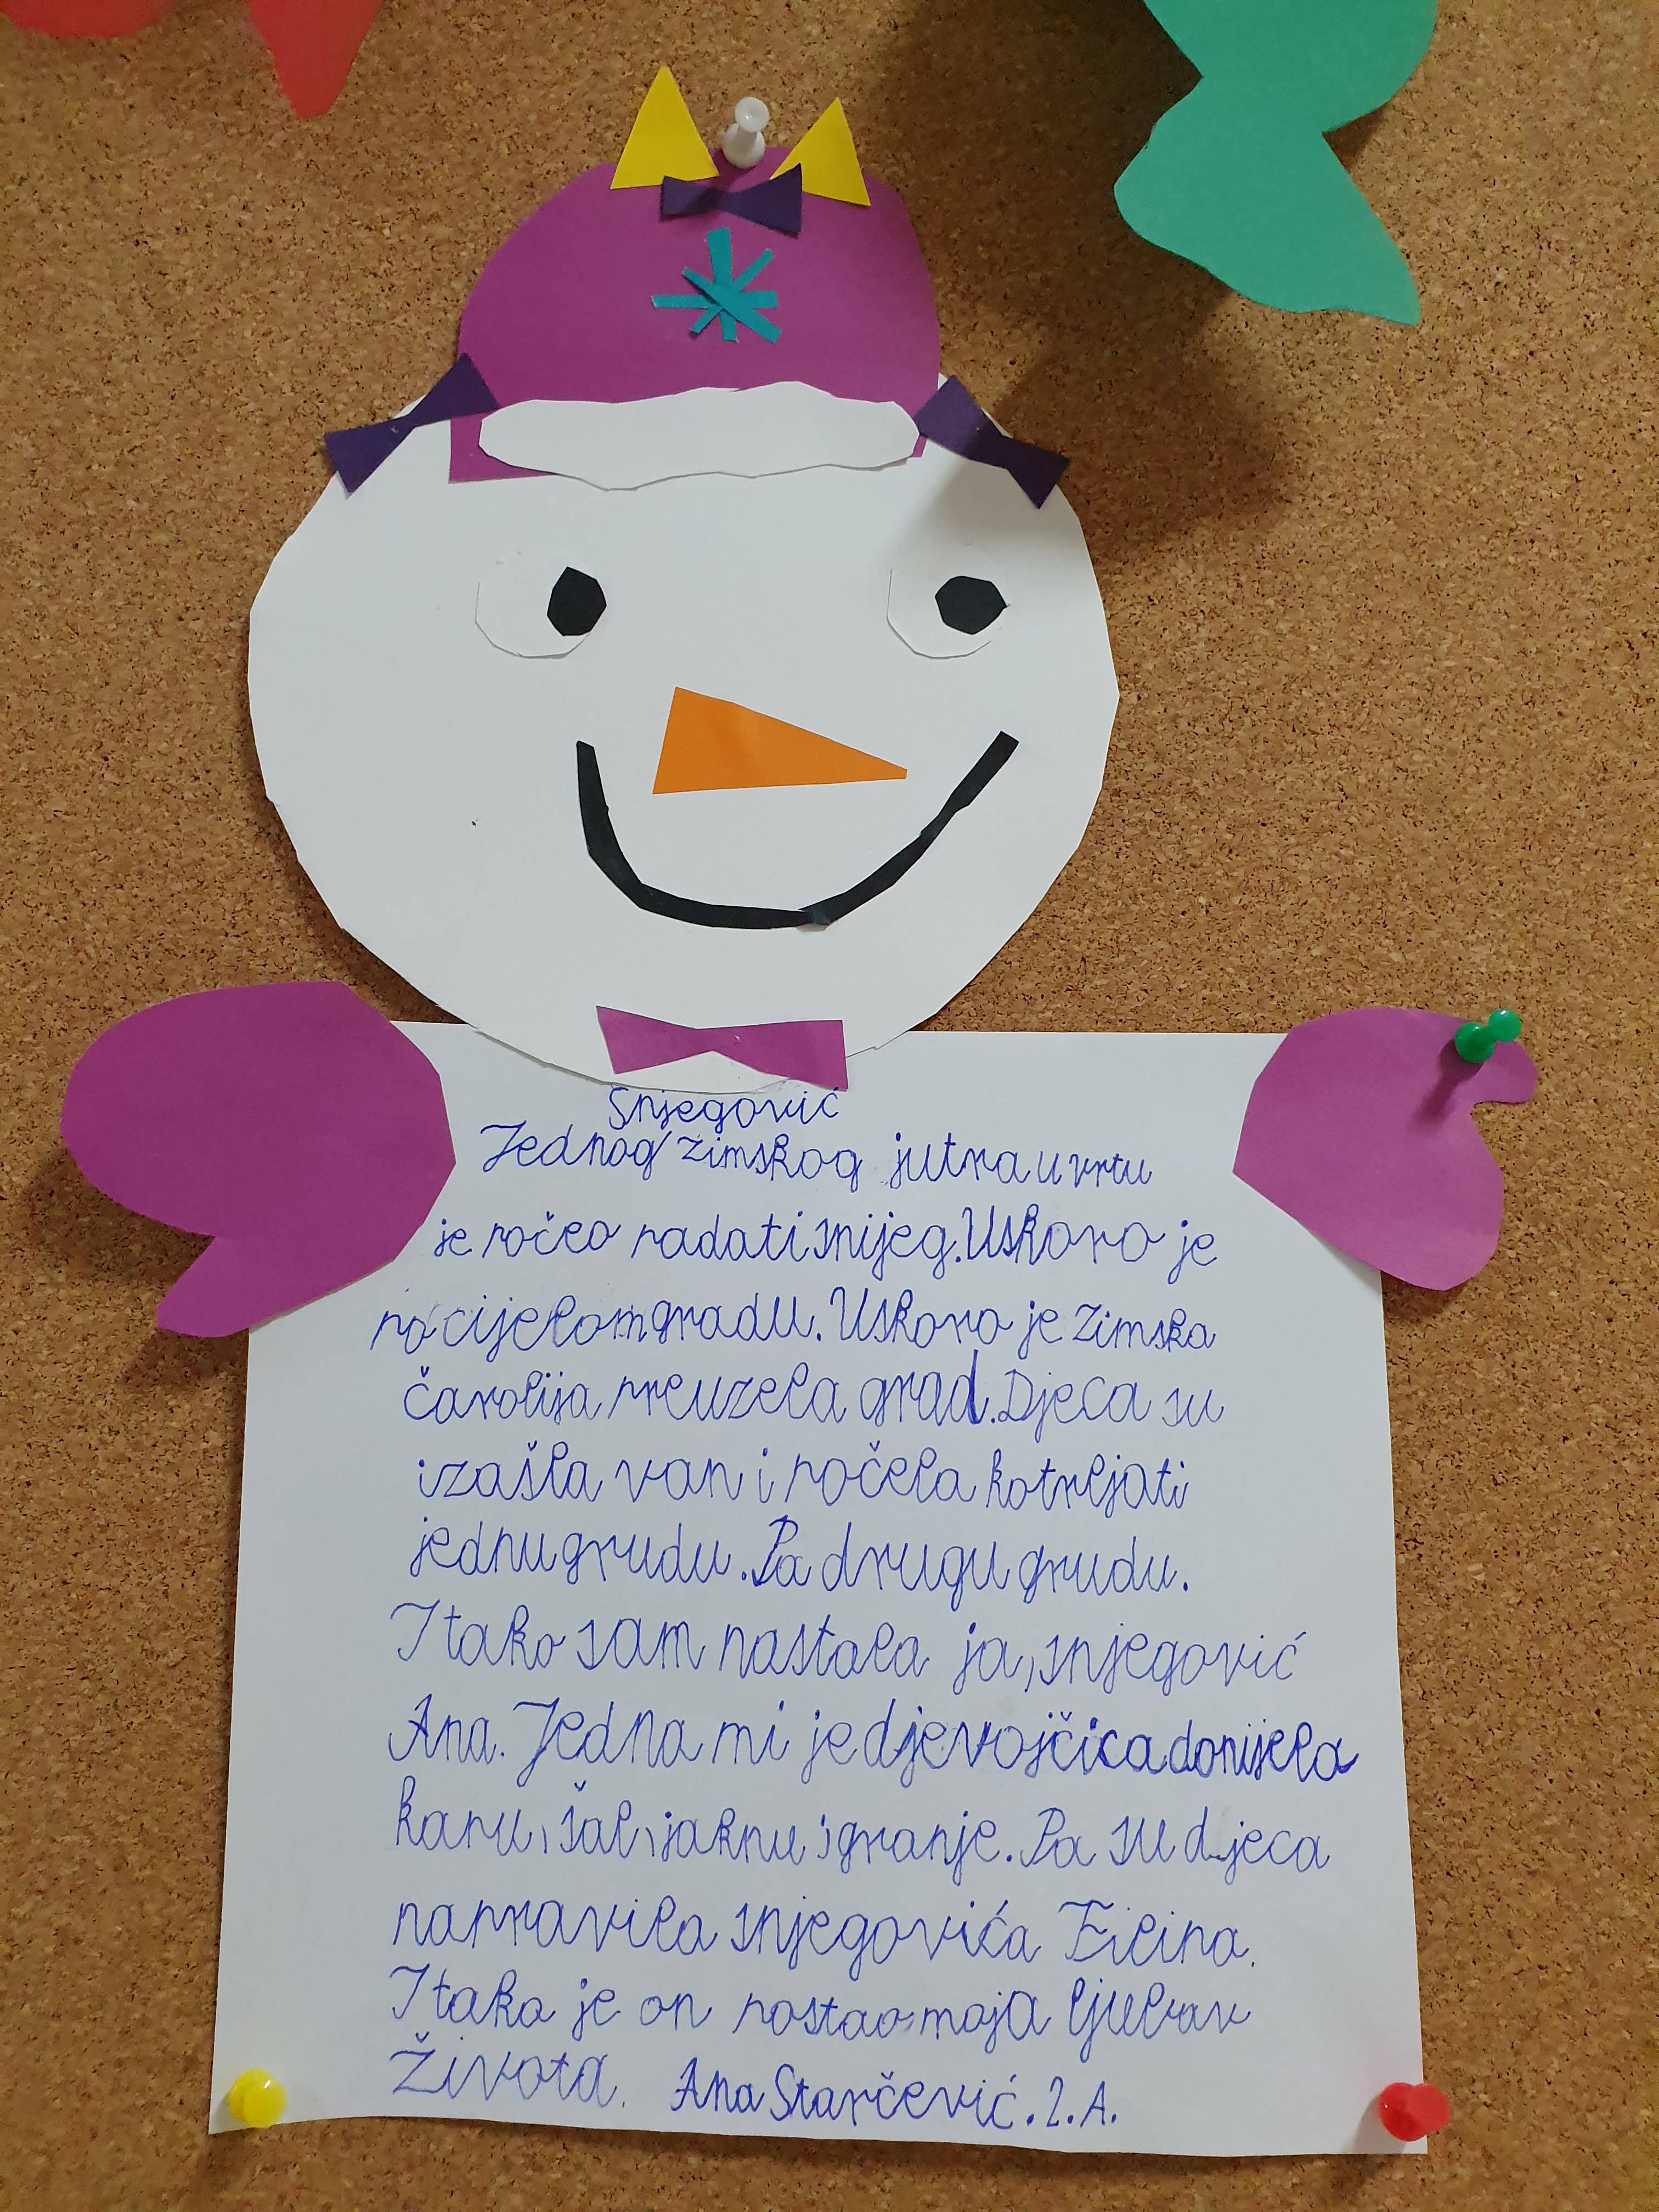 Snjegović
Jednog zimskog jutra u vrtu
je počeo padati snijeg. Uskoro je
po cijelom gradu. Uskoro je zimska
čarolija preuzela grad. Djeca su
izašla van i počela kotrljati
jednu grudu. Pa drugu grudu.
I tako sam nastala ja, snjegović
Ana. Jedna mi je djevojčica donijela
kapu, šal, jaknu i granje. Pa su djeca
napravila snjegovića Filipa.
I tako je on postao moja ljubav
života. Ana Starčević. 2. A.